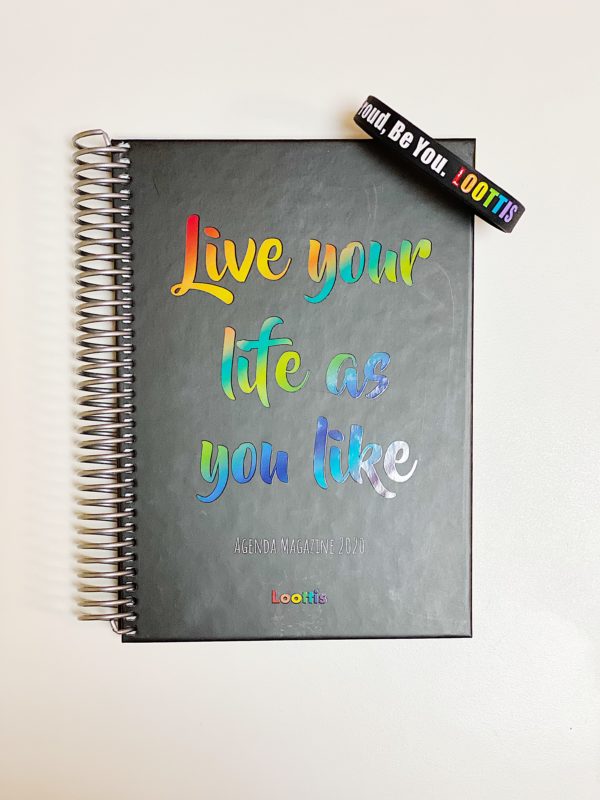 roud, Be You. LOOTTIS
Live your
life as
you like
Agenda Magazine 2020
Loottis